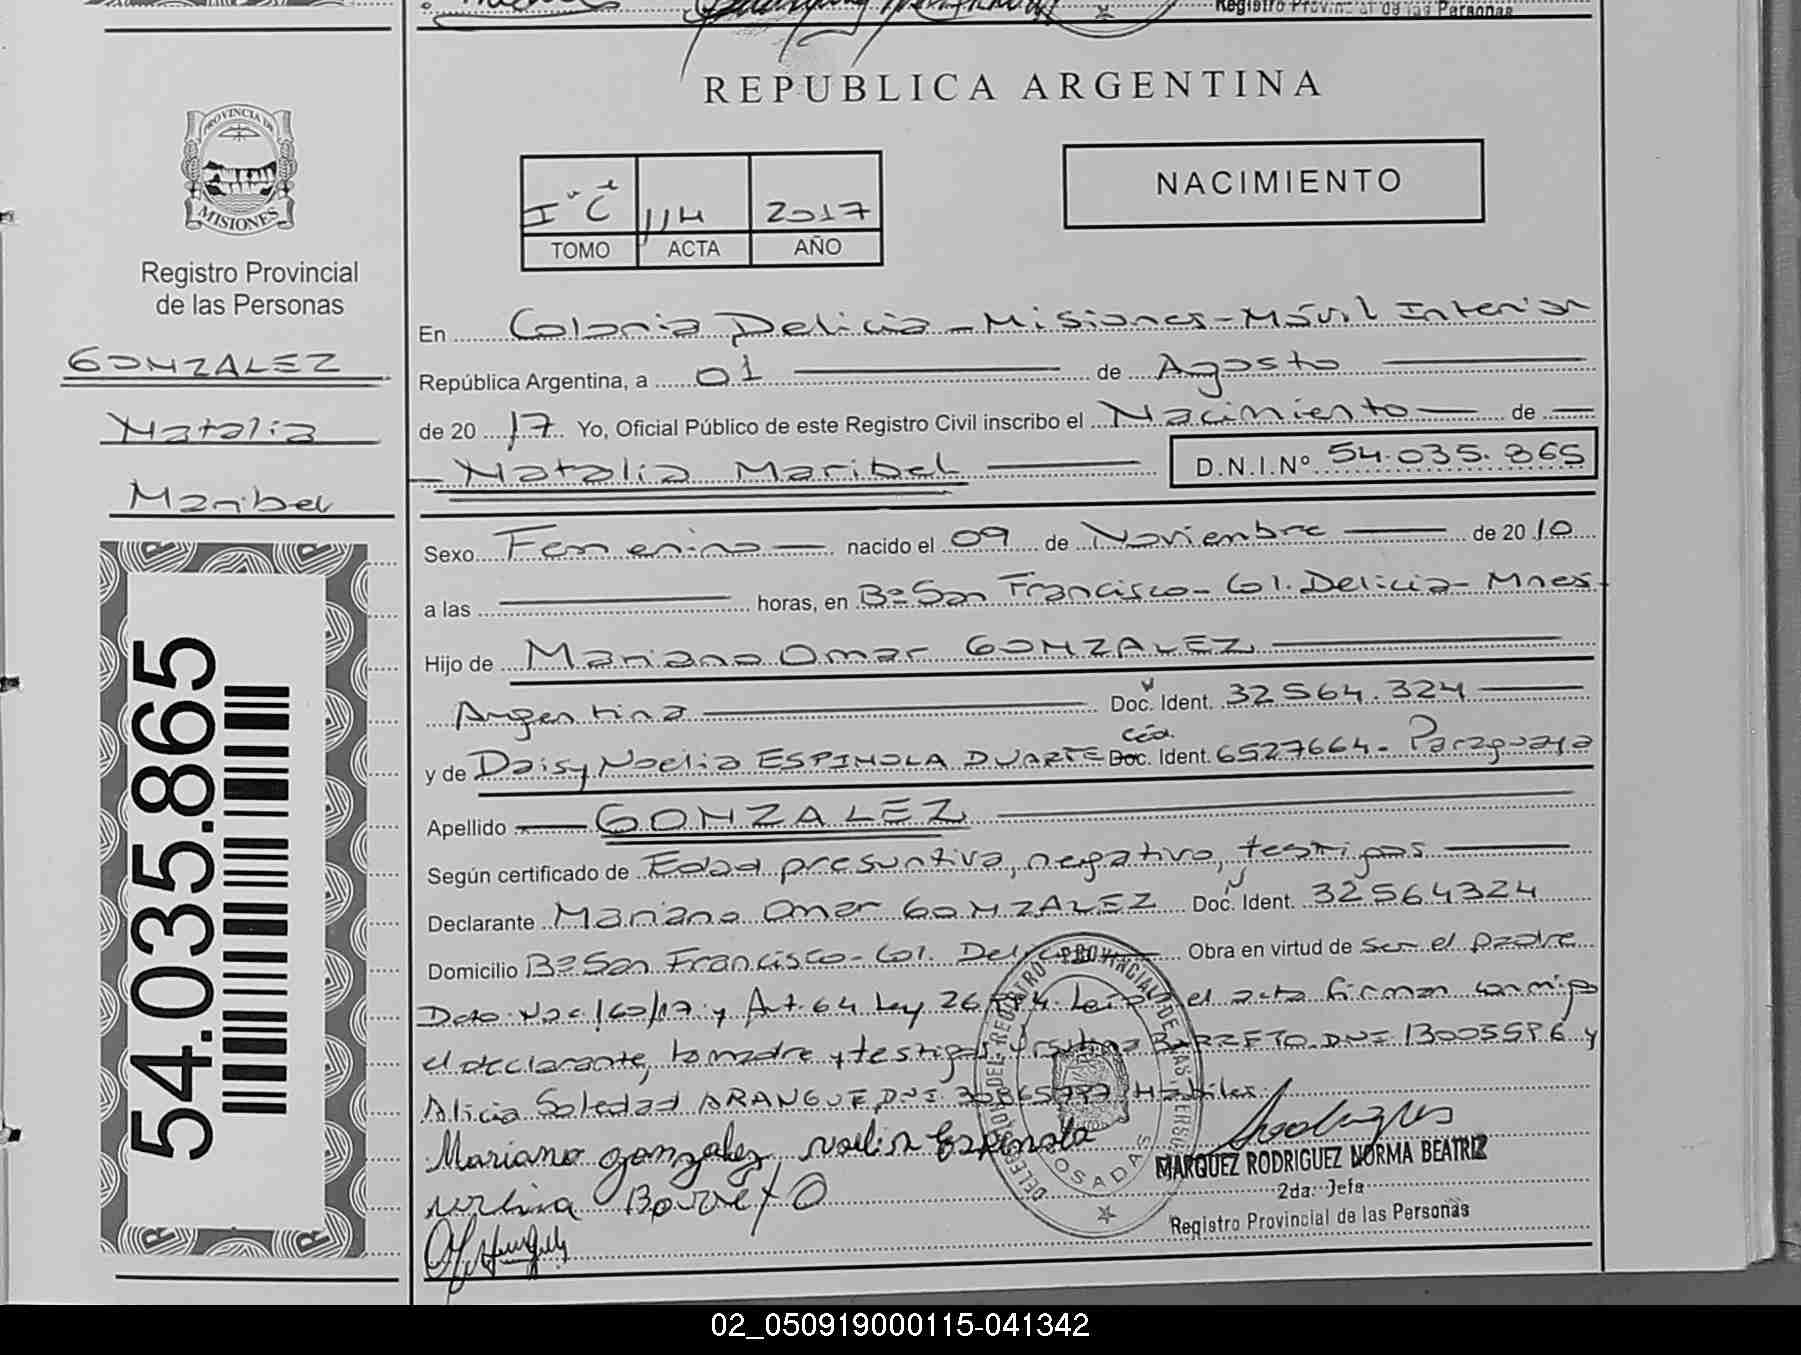 Registro Provincial de las Personas
REPUBLICA ARGENTINA
PROVINCIA DE
MISIONES
Registro Provincial
de las Personas
GONZALEZ
Natalia
Maribel
54.035.865
2017
TOMO ACTA AÑO
NACIMIENTO
En Colonia Delicia - Misiones - Móvil Interior
República Argentina, a 01 de Agosto
de 20 17 Yo, Oficial Público de este Registro Civil inscribo el Nacimiento de
Natalia Maribel D.N.I.Nº 54.035.865
Sexo Femenino nacido el 09 de Noviembre de 20 10
a las horas, en Bº San Francisco - Col. Delicia - Mnes
Hijo de Mariano Omar GONZALEZ
Argentina Doc. Ident. 32564.324
Céd.
y de Daisy Noelia ESPINOLA DUARTE Doc. Ident. 6527664 - Paraguaya
Apellido GONZALEZ
Según certificado de Edad presuntiva, negativo, testigos
Declarante Mariano Omar GONZALEZ Doc. Ident. 32564324
Domicilio Bº San Francisco - Col. Delicia Obra en virtud de ser el padre
Dcto Nac 160/17 y Art. 64 Ley Leída el acta firman conmigo
el declarante, la madre y testigos BARRETO DNI y
Alicia Soledad DNI Hábiles.
Mariano gonzalez Noelia Espinola
Barreto
DELEGACION DEL REGISTRO PROVINCIAL DE LAS PERSONAS
POSADAS
MARQUEZ RODRIGUEZ NORMA BEATRIZ
2da. Jefa
Registro Provincial de las Personas
02_050919000115-041342